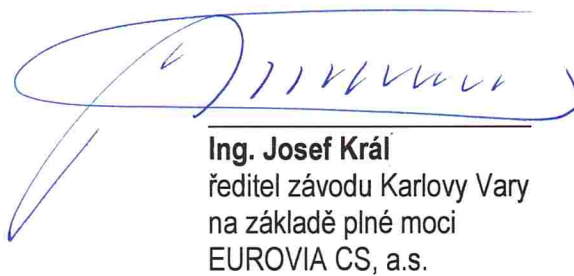 Ing. Josef Král
ředitel závodu Karlovy Vary
na základě plné moci
EUROVIA CS, a.s.